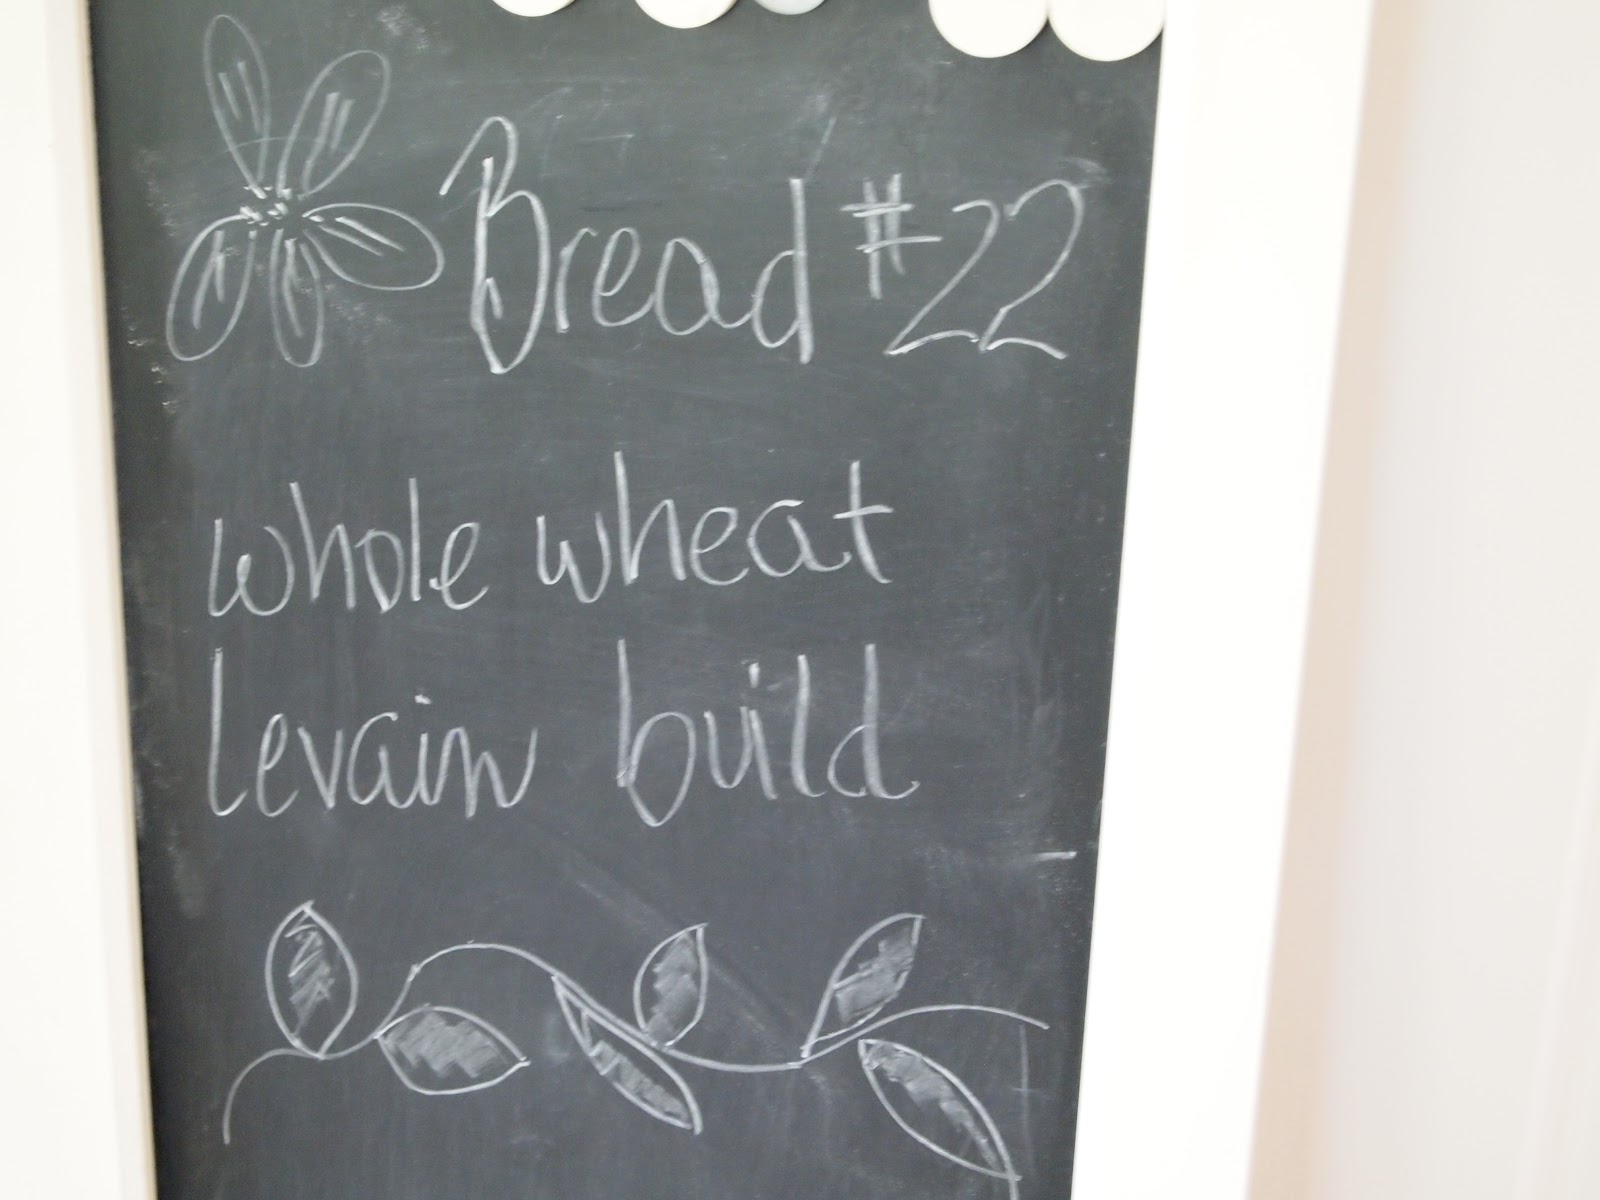 Bread #22
whole wheat
levain build